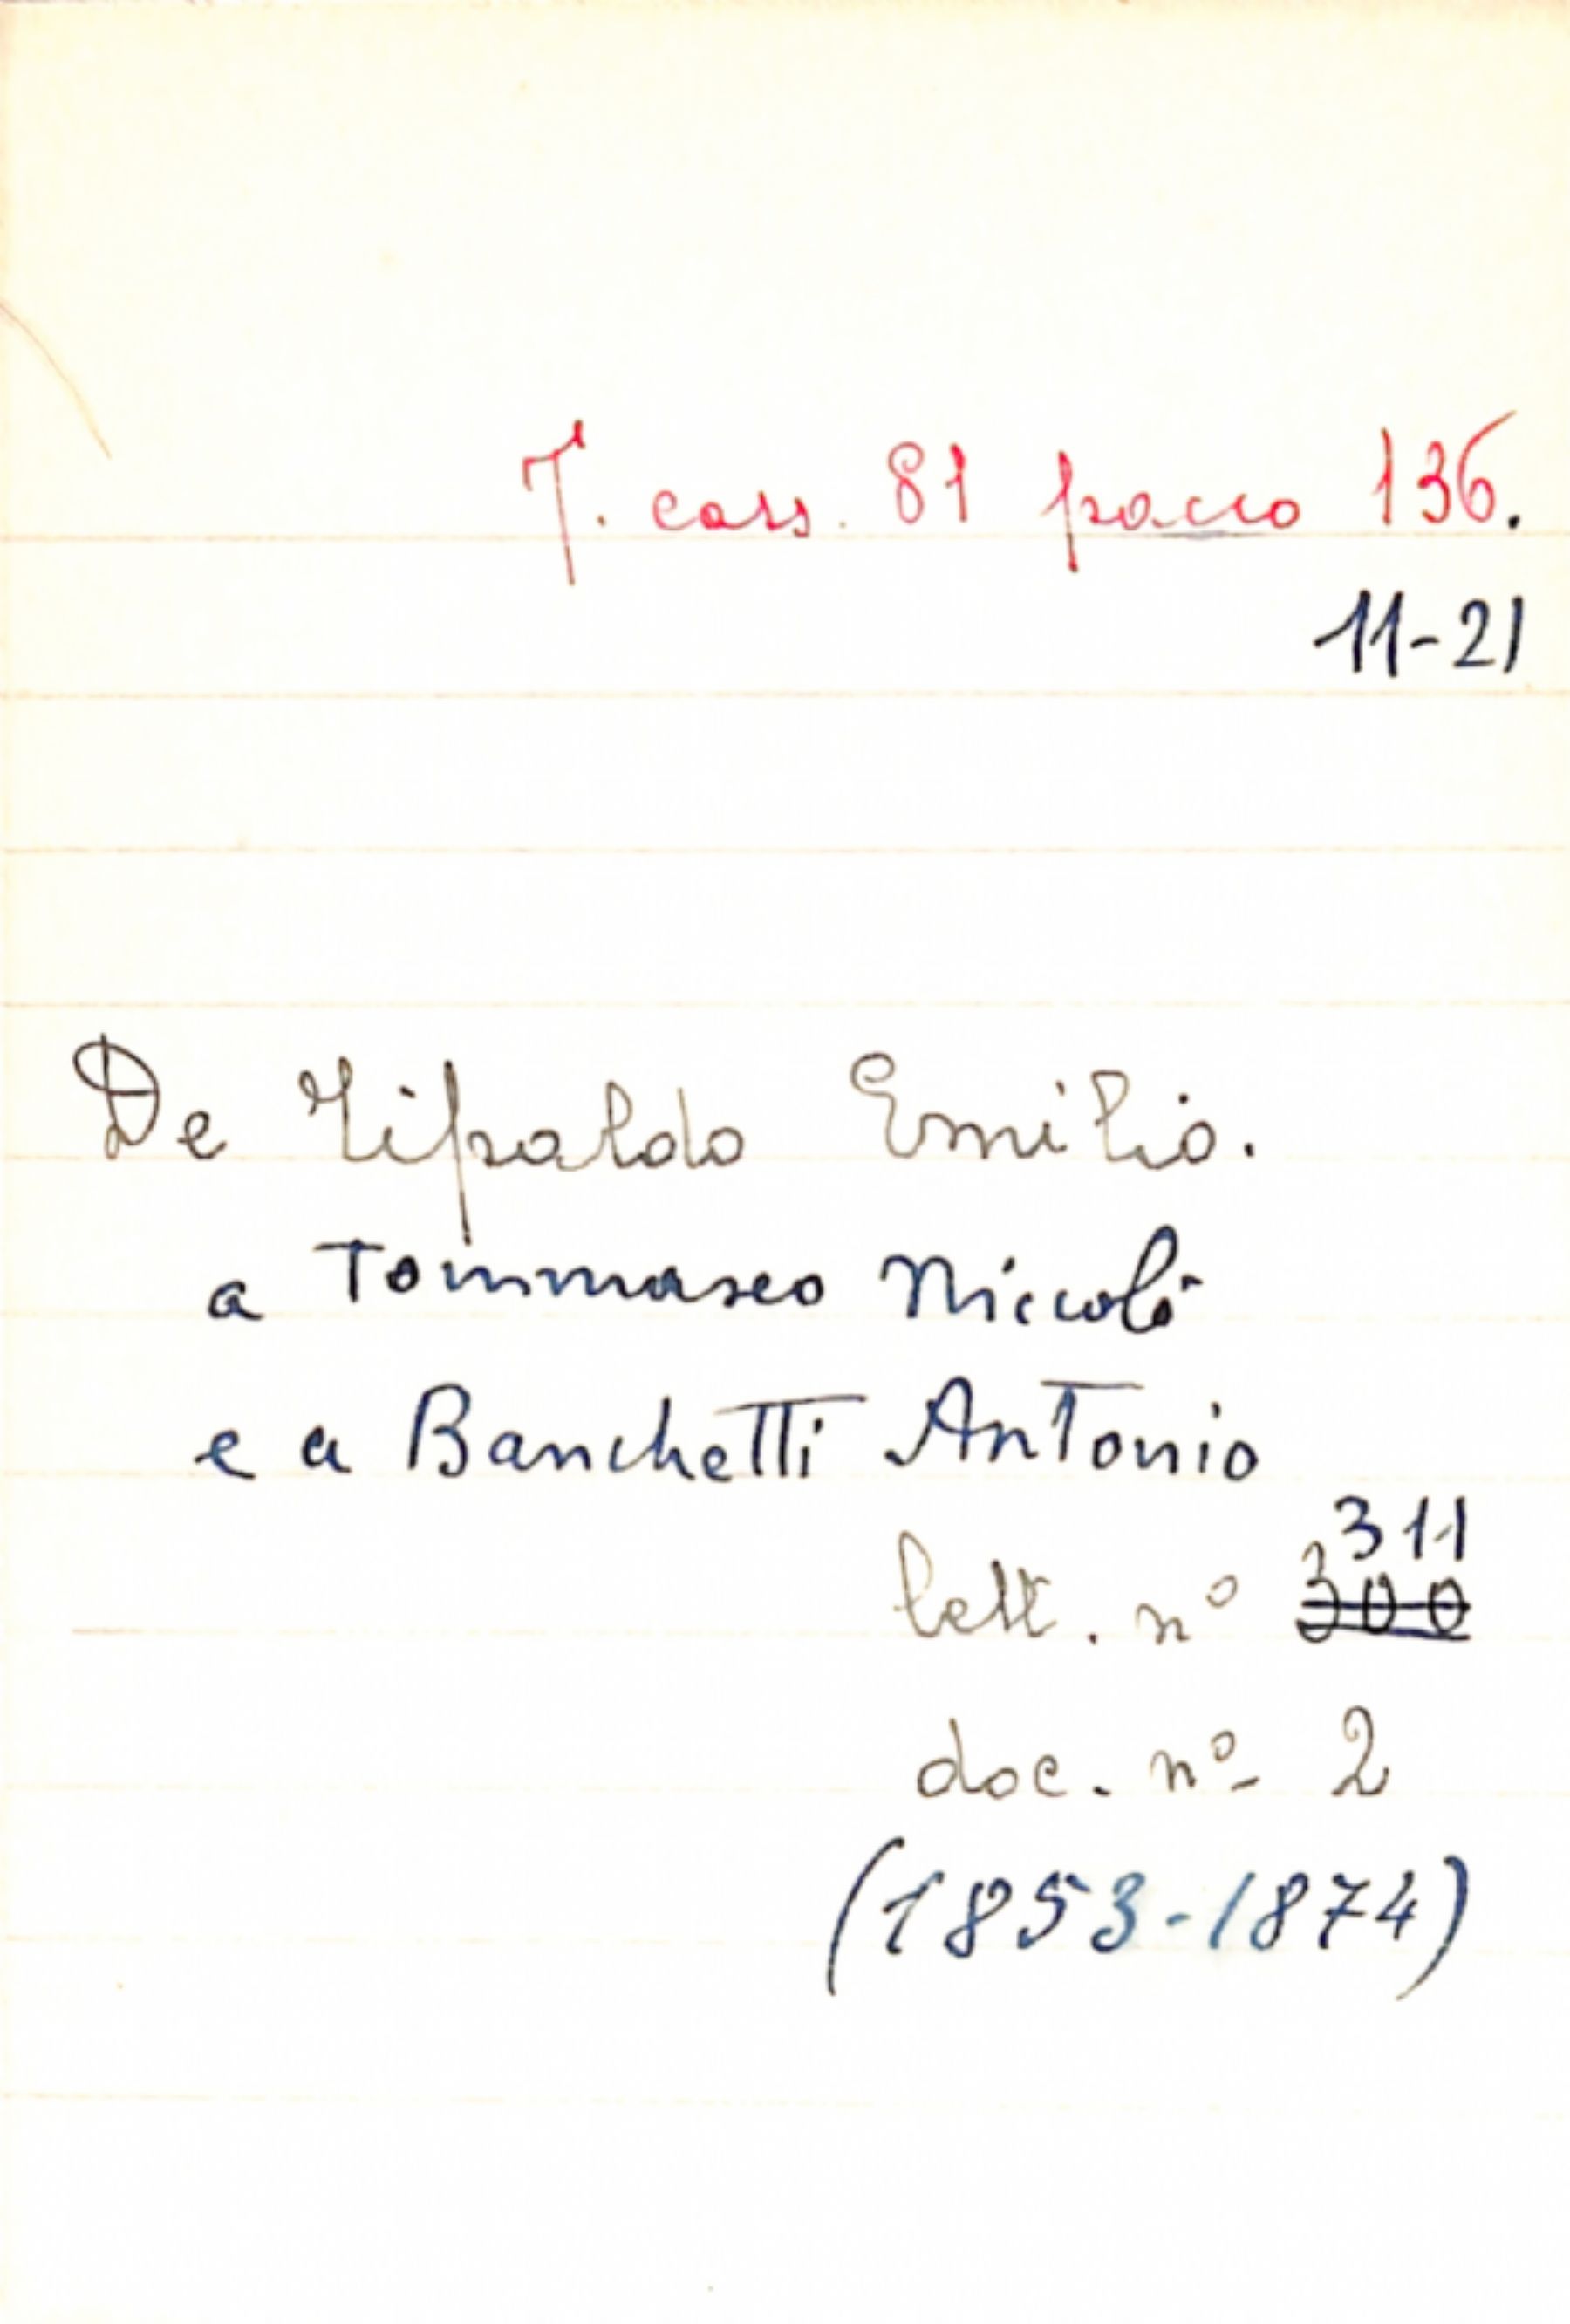 T. cass. 81 pacco 136.
11-21
De Tipaldo Emilio.
a Tommaseo Niccolò
e a Banchetti Antonio
311
lett. nº 300
doc. nº 2
(1853-1874)